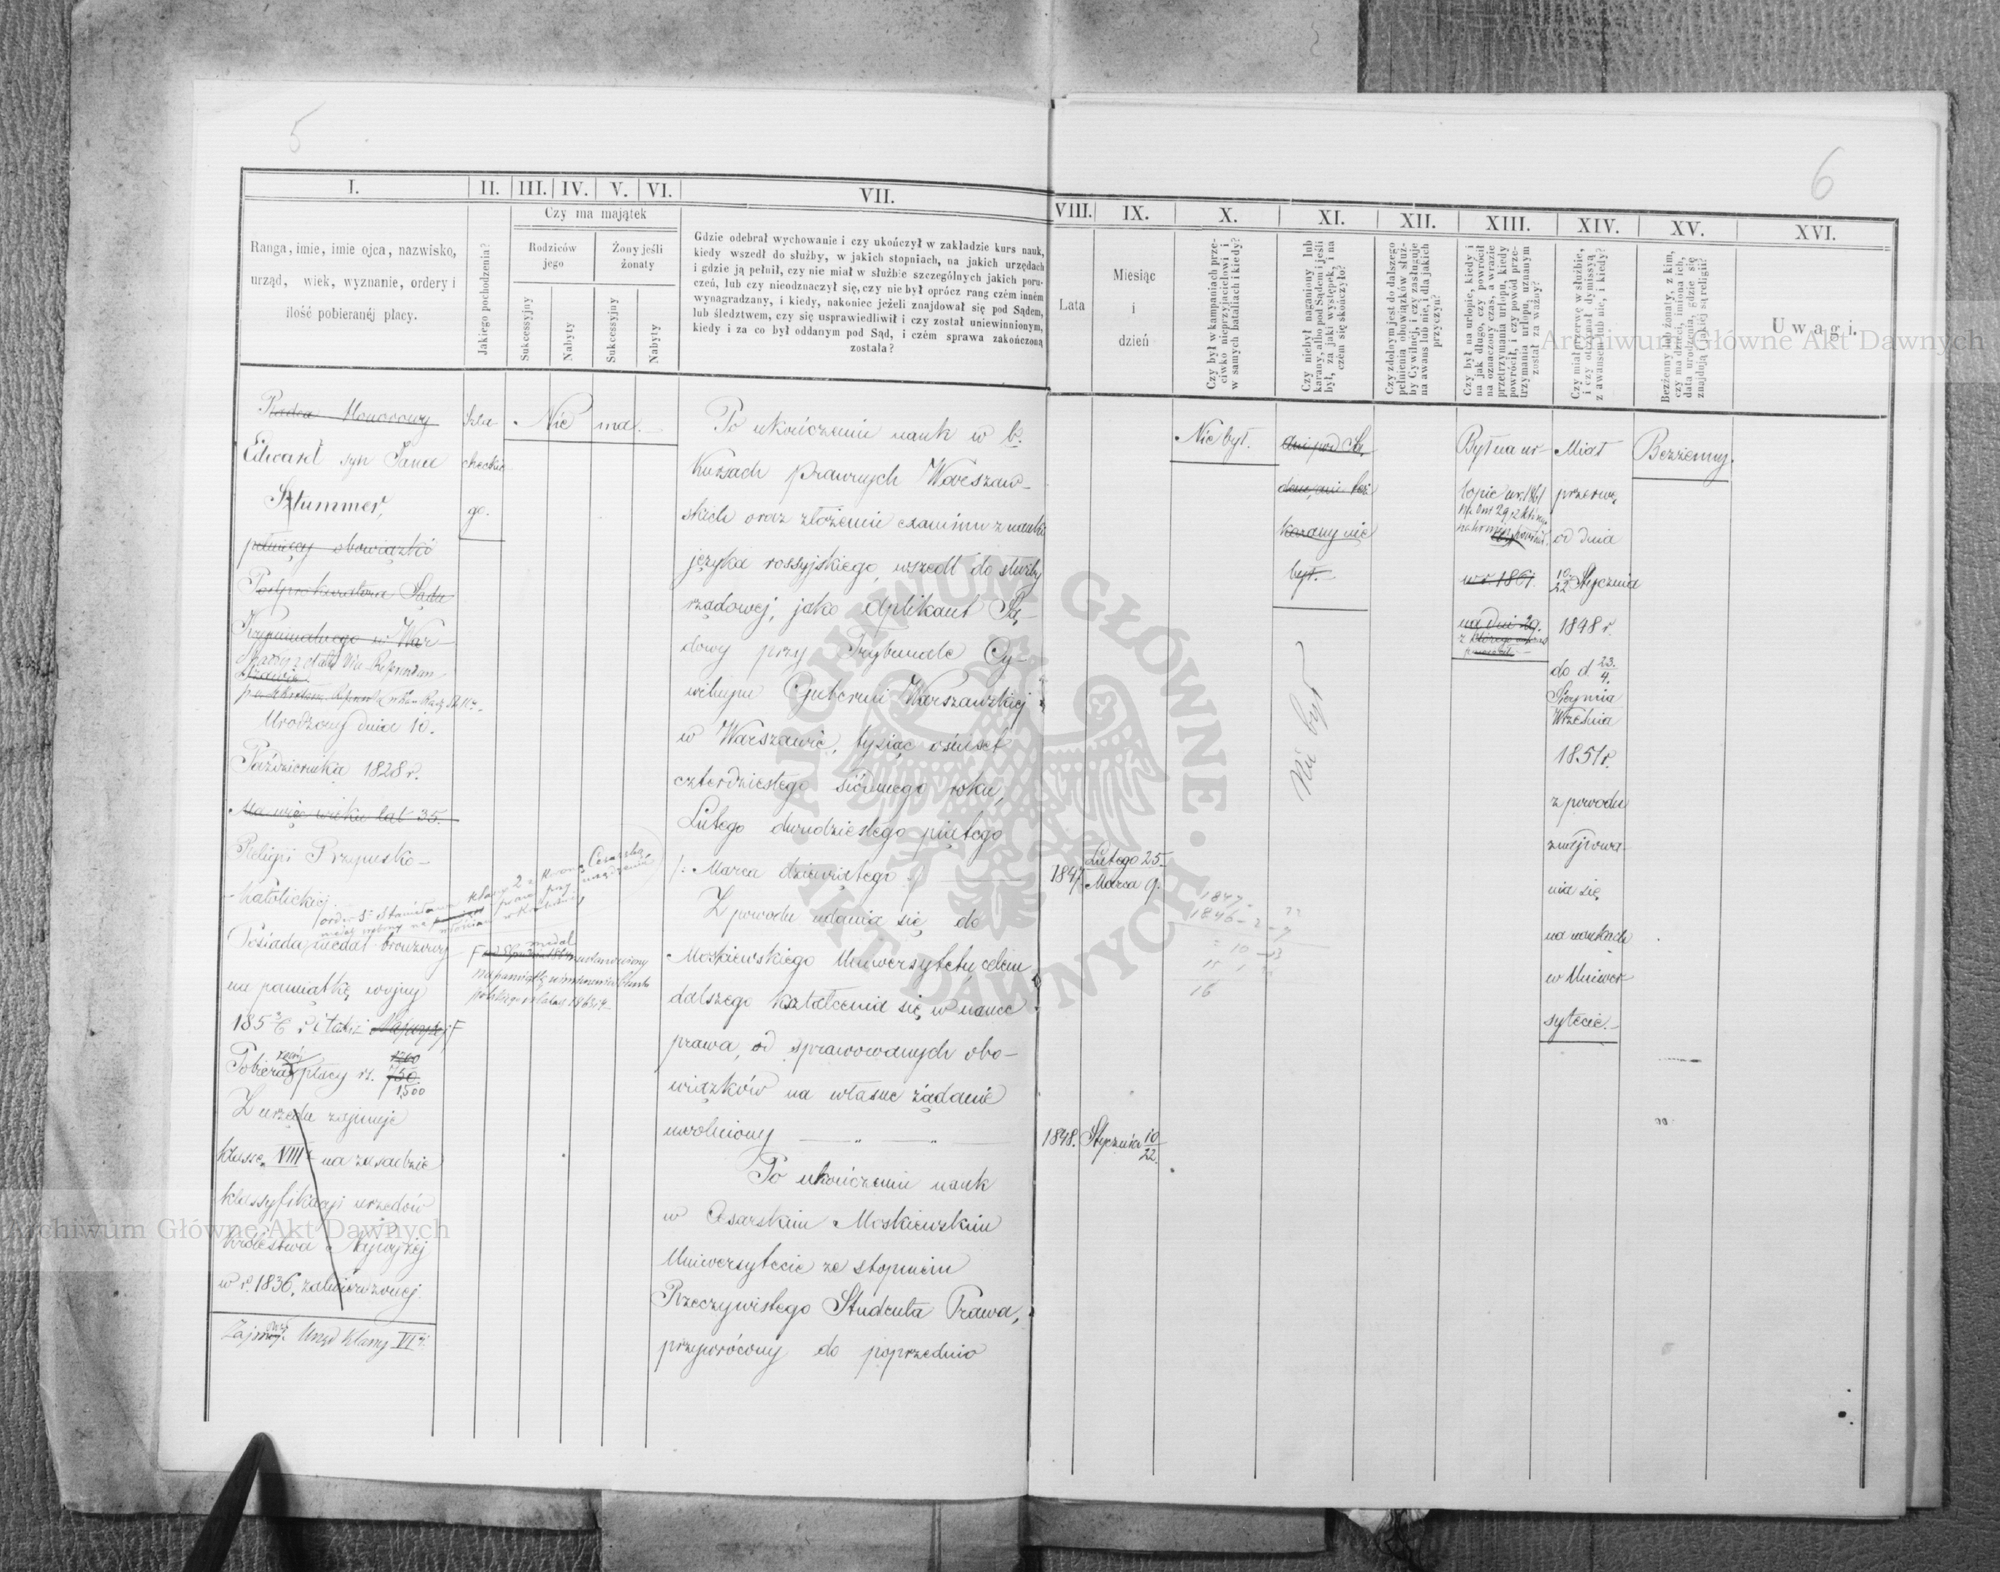 5
6
I.
II.
III.
IV.
V.
VI.
VII.
VIII.
IX.
X.
XI.
XII.
XIII.
XIV.
XV.
XVI.
Ranga, imie, imie ojca, nazwisko,
urząd, wiek, wyznanie, ordery i
ilość pobieranéj płacy.
Jakiego pochodzenia?
Czy ma majątek
Rodziców
jego
Żony jeśli
żonaty
Sukcessyjny
Nabyty
Sukcessyjny
Nabyty
Gdzie odebrał wychowanie i czy ukończył w zakładzie kurs nauk,
kiedy wszedł do służby, w jakich stopniach, na jakich urzędach
i gdzie ją pełnił, czy nie miał w służbie szczególnych jakich poru-
czeń, lub czy nieodznaczył się, czy nie był oprócz rang czém inném
wynagradzany, i kiedy, nakoniec jeżeli znajdował się pod Sądem,
lub śledztwem, czy się usprawiedliwił i czy został uniewinnionym,
kiedy i za co był oddanym pod Sąd, i czém sprawa zakończoną
została?
Lata
Miesiąc
i
dzień
Czy był w kampaniach prze-
ciwko nieprzyjacielowi i
w samych batalach i kiedy?
Czy niebył naganiony lub
karany, albo pod Sądem i jeśli
był, za jaki występek, i na
czém się skończyło?
Czy zdolnym jest do dalszego
pełnienia obowiązków służ-
by Cywilnéj, i czy zasługuje
na awans lub nie, i dla jakich
przyczyn?
Czy był na urlopie, kiedy i
na jak długo, czy powrócił
na oznaczony czas, a w razie
przetrzymania urlopu, kiedy
powrócił, i czy powód prze-
trzymania urlopu, uznanym
został za ważny?
Czy miał przerwę w służbie,
i czy otrzymał dymissyą
z awansem lub nie, i kiedy?
Bezżenny lub żonaty, z kim,
czy ma dzieci, imiona ich,
data urodzenia, gdzie się
znajdują i jakiéj są religii?
Uwagi.
Radca Honorowy
Edward syn Jana
Sztummer,
pełniący obowiązki
Podprokuratora Sądu
Kryminalnego w War-
szawie
Urodzony dnia 10.
Października 1828 r.
Ma więc wieku lat 35.
Religii Rzymsko-
Katolickiej.
Posiada medal bronzowy
na pamiątkę wojny
1853/6 r. i takiż
Pobiera płacy rs. 1200
750.
1,500
Z urzędu zajmuje
klassę VIII na zasadzie
klassyfikacyi urzędów
Królestwa Najwyżej
w r. 1836. zatwierdzonej.
Urząd klassy VI
Szla-
checkie-
go.
Nie ma.
order St. Stanisława klassy 2 z Koroną Cesarską
medal
ustanowiony
na pamiątkę uśmierzenia buntu
polskiego w latach 1863/4.
Po ukończeniu nauk w b.
Kursach Prawnych Warszaw-
skich oraz złożeniu examinu z nauki
języka rossyjskiego, wszedł do służby
rządowej, jako Aplikant Są-
dowy przy Trybunale Cy-
wilnym Gubernii Warszawskiej
w Warszawie, tysiąc ośmset
czterdziestego siódmego roku,
Lutego dwudziestego piątego
/: Marca dziewiątego :/
Z powodu udania się do
Moskiewskiego Uniwersytetu celem
dalszego kształcenia się w nauce
prawa, od sprawowanych obo-
wiązków na własne żądanie
uwolniony
Po ukończeniu nauk
w Cesarskim Moskiewskim
Uniwersytecie ze stopniem
Rzeczywistego Studenta Prawa,
przywrócony do poprzednio
1847
Lutego 25
Marca 9.
1848.
Stycznia 10/22.
Nie był.
1847
1846
10
16
ani pod Są-
dem, ani też
karany nie
był.
Nie był
Był na ur-
lopie w r. 1861
na dni 29
w r. 1861.
na dni 29.
Miał
przerwę
od dnia
10/22 Stycznia
1848 r.
do d. 23./4.
Sierpnia
Września
1851 r.
z powodu
znajdowa-
nia się
na naukach
w Uniwer-
sytecie.
Bezżenny.
ARCHIWUM GŁÓWNE AKT DAWNYCH
Archiwum Główne Akt Dawnych
Archiwum Główne Akt Dawnych